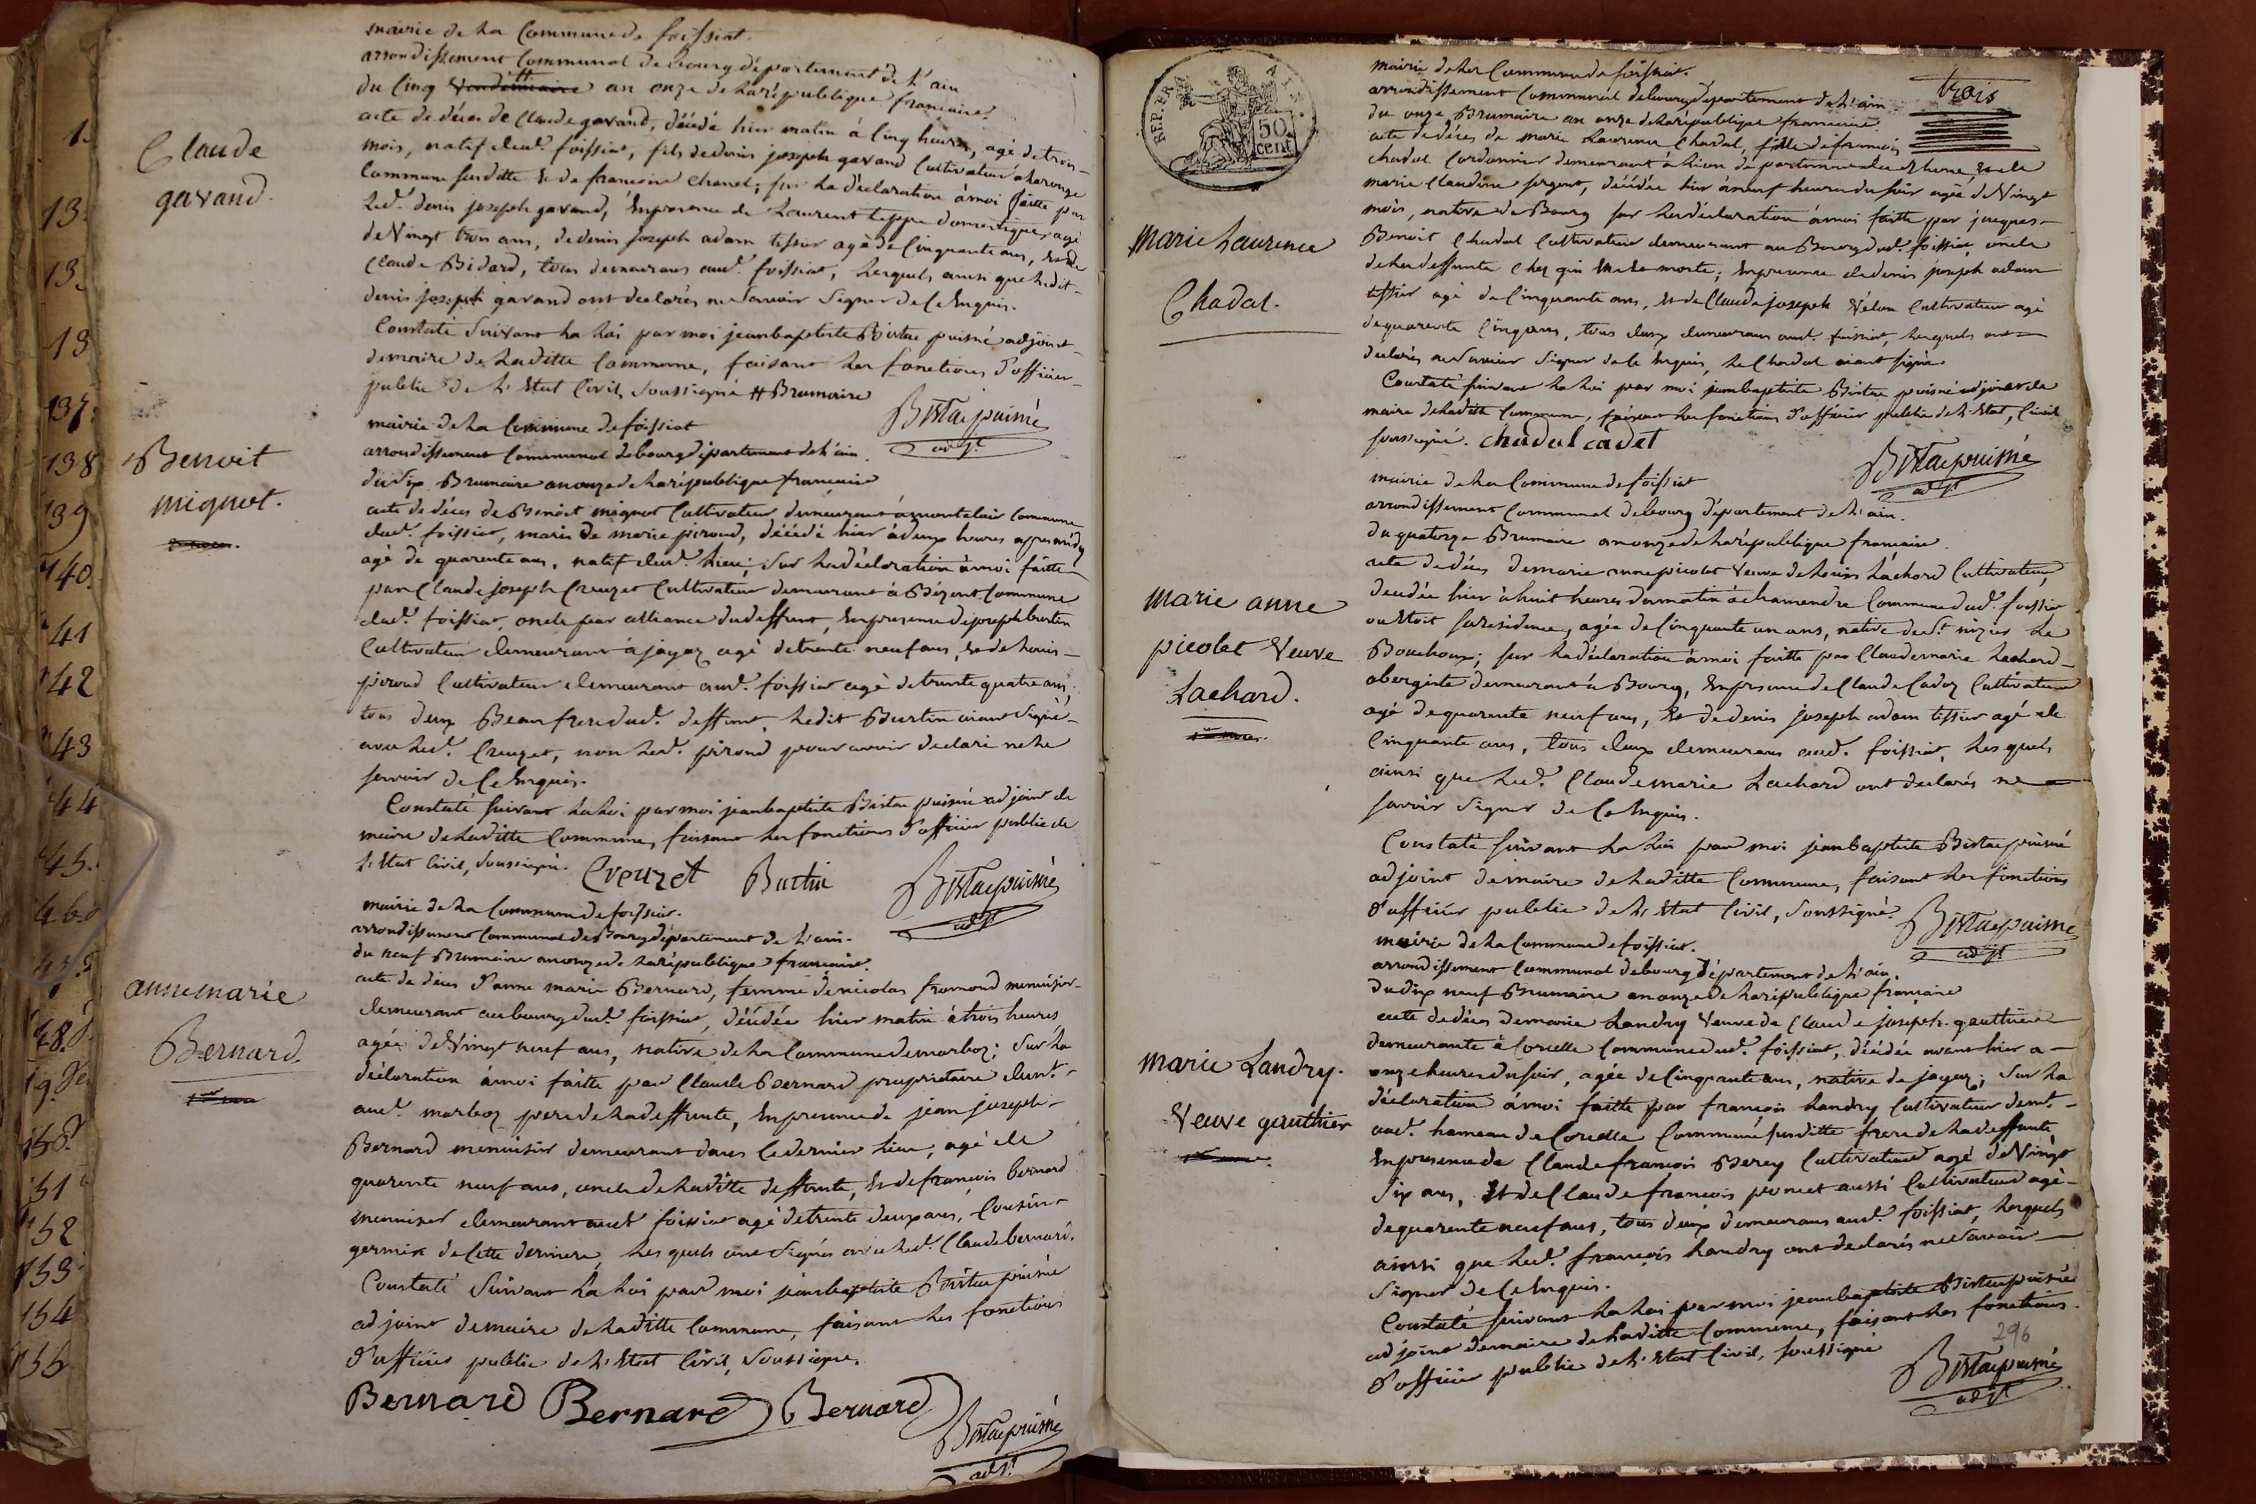 1.
13.
13.
13
137.
138
139
140.
41
142
143
44
45.
46.
47.
48.
49.
150.
151
152
153
154
155
mairie de la Commune de foissiat.
arrondissement Communal de bourg département de l'ain
du Cinq Vendémiaire # an onze de la république française.
acte de décès de Claude gavand, décédé hier matin à Cinq heures, agé de trois
mois, natif dud. foissiat, fils de denis joseph gavand Cultivateur
Commune susditte et de françoise Chanel; sur la déclaration à moi faitte par
led. denis joseph gavand, En presence de Laurent teppe domestique, agé
de Vingt trois ans, de denis joseph adam tissier agé de Cinquante ans, et de
Claude Bidard, tous demeurans aud. foissiat, lesquels ainsi que ledit
denis joseph gavand ont declarés ne Savoir Signer de Ce Enquis.
Constaté Suivant la loi par moi jean baptiste Bistac puisné adjoint
de maire de laditte Commune, faisant les fonctions d'officier
public de l'Etat Civil, Soussigné # Brumaire
Bistac puisné
adjt
Claude
gavand.
mairie de la Commune de foissiat
arrondissement Communal de bourg département de l'ain.
du Six Brumaire an onze de la république française
acte de décès de Benoit mignot Cultivateur demeurant à montclair Commune
dud. foissiat, marie de marie piroud, décédé hier à deux heures apres midy
agé de quarente ans, natif dud. lieu; Sur la déclaration à moi faitte
par Claude joseph Creuzet Cultivateur demeurant à Bézent Commune
dud. foissiat, oncle par alliance dud deffunt, En presence de joseph burtin
Cultivateur demeurant à jayaz agé de trente neuf ans, et de Louis
piroud Cultivateur demeurant aud. foissiat agé de trente quatre ans,
tous deux Beau frere dud. deffunt, ledit Burtin aiant Signé
avec led. Creuzet, non led. piroud pour avoir declaré ne le
savoir de Ce Enquis.
Constaté Suivant la loi par moi jean baptiste Bistac puisné adjoint de
maire de laditte Commune, faisant les fonctions d'officier public de
l'Etat Civil, Soussigné.
Creuzet Burtin Bistac puisné
adjt
Benoit
mignot.
mairie de la Commune de foissiat.
arrondissement Communal de Bourg département de l'ain.
du neuf Brumaire an onze de la république française.
acte de décès d'anne marie Bernard, femme de nicolas fromond menuisier
demeurant au bourg dud. foissiat, décédée hier matin à trois heures
agée de Vingt neuf ans, native de la Commune de marboz; Sur la
déclaration à moi faitte par Claude Bernard propriétaire demt.
aud. marboz pere de la deffunte, En presence de jean joseph
Bernard menuisier demeurant dans Ce dernier lieu, agé de
quarente neuf ans, oncle de laditte deffunte, Et de françois bernard
menuisier demeurant aud. foissiat agé de trente deux ans, Cousin
germin de Cette derniere, lesquels ont Signés avec led. Claude bernard.
Constaté Suivant la loi par moi jean baptiste Bistac puisné
adjoint de maire de laditte Commune, faisant les fonctions
d'officier public de l'Etat Civil, Soussigné.
Bernard Bernard Bernard
Bistac puisné
adjt
anne marie
Bernard.
REP. FRA.
50
cent
trois
mairie de la Commune de foissiat.
arrondissement Communal de bourg département de l'ain
du onze Brumaire an onze de la république française
acte de décès de marie Laurence Chadal, fille de françois
Chadal Cordonnier demeurant à Lion département du Rhone, et de
marie Claudine sergent, décédée hier à neuf heures du soir agée de Vingt
mois, native de Bourg sur la déclaration à moi faitte par jacques
Benoit Chadal Cultivateur demeurant au Bourg dud. foissiat, oncle
de la deffunte Chez qui Elle Est morte, En presence de denis joseph adam
tissier agé de Cinquante ans, Et de Claude joseph Velon Cultivateur agé
de quarente Cinq ans, tous deux demeurans aud. foissiat, lesquels ont
declarés ne Savoir Signer de Ce Enquis, le Chadal aiant Signé.
Constaté suivant la loi par moi jean baptiste Bistac puisné adjoint de
maire de laditte Commune, faisant les fonctions d'officier public de l'Etat, Civil
soussigné. Chadal cadet
Bistac puisné
adjt
Marie Laurence
Chadal.
mairie de la Commune de foissiat
arrondissement Communal de bourg département de l'ain.
du quatorze Brumaire an onze de la république française.
acte de décès de marie anne picolet Veuve de Louis Lachard Cultivateur,
decédée hier à huit heures du matin à chamendre Commune dud. foissiat
ou Etoit sa residence, agée de Cinquante un ans, native de St. nizier le
Bouchoux; sur la déclaration à moi faitte par Claude marie Lachard
obergiste demeurant à Bourg, En presence de Claude Cadoz Cultivateur
agé de quarente neuf ans, Et de denis joseph adam tissier agé de
Cinquante ans, tous deux demeurans aud. foissiat, lesquels
ainsi que led. Claude marie Lachard ont declarés ne
savoir Signer de Ce Enquis.
Constaté suivant la loi par moi jean baptiste Bistac puisné
adjoint de maire de laditte Commune, faisant les fonctions
d'officier public de l'Etat Civil, Soussigné.
Bistac puisné
adjt
Marie anne
picolet Veuve
Lachard.
mairie de la Commune de foissiat.
arrondissement Communal de bourg département de l'ain.
du dix neuf Brumaire an onze de la république française
acte de décès de marie Landry Veuve de Claude joseph gauthier
demeurante à Corcelle Commune dud. foissiat, décédée avant hier a
onze heures du soir, agée de Cinquante ans, native de jayaz; Sur la
déclaration à moi faitte par françois Landry Cultivateur demt.
aud. hameau de Corcelle Commune susditte frere de la deffunte
En presence de Claude françois Perey Cultivateur agé de Vingt
Six ans, Et de Claude françois poncet aussi Cultivateur agé
de quarente neuf ans, tous deux demeurans aud. foissiat, lesquels
ainsi que led. françois Landry ont declarés ne Savoir
Signer de Ce Enquis.
Constaté suivant la loi par moi jean baptiste Bistac puisné
adjoint de maire de laditte Commune, faisant les fonctions
d'officier public de l'Etat Civil, soussigné
296
Bistac puisné
adjt
Marie Landry.
Veuve gauthier